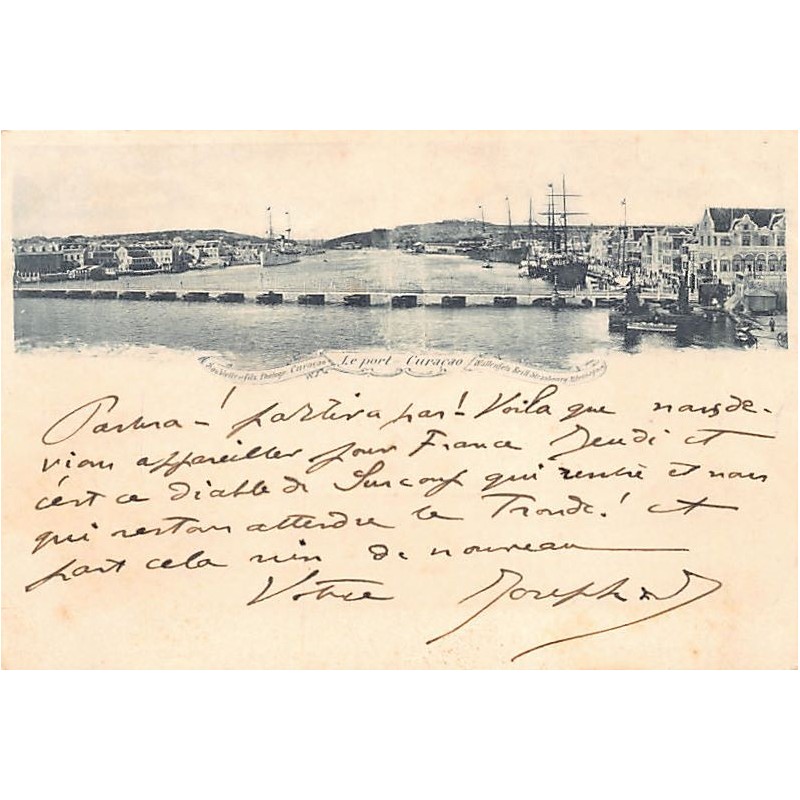 Le port Curaçao
Partira-! partira pas! Voila que nous de-
vions appareiller pour France Jeudi et
c'est ce diable de Surcouf qui rentre et nous
qui restons attendre le Tronde! et
part cela rien de nouveau
Votre Joseph